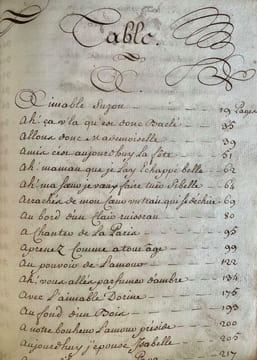 Table.
A
Aimable Suzon 19 Pages
Ah! ça v'la qu'est donc Baclé 35
Allons donc Mademoiselle 39
Amis c'est aujourd'huy la fête 51
Ah! maman que je l'ay échappé belle 62
Ah! ma sœur je vais faire une si belle 64
Arraches de mon cœur un trait qui le déchire 69
Au bord d'un clair ruisseau 80
a Chanter de la Paria 95
Aprenez Comme a tout âge 99
Au pouvoir de L'amour 122
Ah! vous allés parfumer d'ambre 134
Avec l'aimable Dorine 176
Au fond d'un Bois 193
A notre bonheur L'amour préside 200
Aujourd'huy j'épouse Isabelle 205
217